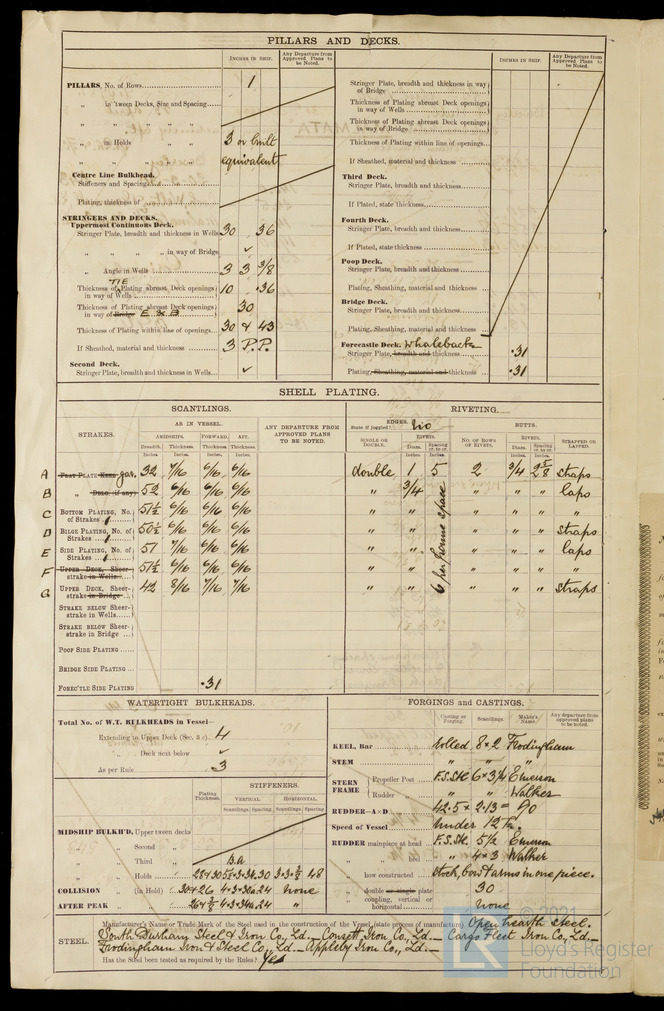 PILLARS AND DECKS.
INCHES IN SHIP.
Any Departure from Approved Plans to be Noted.
PILLARS, No. of Rows 1
„ in 'tween Decks, Size and Spacing
„ „ „ „
„ in Holds 3 or built
„ „ „ equivalent
Centre Line Bulkhead.
Stiffeners and Spacing
Plating, thickness of
STRINGERS AND DECKS.
Uppermost Continuous Deck.
Stringer Plate, breadth and thickness in Wells 30 .36
„ „ „ „ in way of Bridge ✓
„ Angle in Wells 3 3 3/8
TIE
Thickness of Plating abreast Deck openings in way of Wells 10 .36
Thickness of Plating abreast Deck openings in way of Bridge E & B 30
Thickness of Plating within line of openings 30 & 43
If Sheathed, material and thickness 3 P.P.
Second Deck.
Stringer Plate, breadth and thickness in Wells ✓
INCHES IN SHIP.
Any Departure from Approved Plans to be Noted.
Stringer Plate, breadth and thickness in way of Bridge
Thickness of Plating abreast Deck openings in way of Wells
Thickness of Plating abreast Deck openings in way of Bridge
Thickness of Plating within line of openings
If Sheathed, material and thickness
Third Deck.
Stringer Plate, breadth and thickness
If Plated, state thickness
Fourth Deck.
Stringer Plate, breadth and thickness
If Plated, state thickness
Poop Deck.
Stringer Plate, breadth and thickness
Plating, Sheathing, material and thickness
Bridge Deck.
Stringer Plate, breadth and thickness
Plating, Sheathing, material and thickness
Forecastle Deck. Whaleback
Stringer Plate, breadth and thickness .31
Plating, Sheathing, material and thickness .31
SHELL PLATING.
SCANTLINGS.
RIVETING.
STRAKES.
AS IN VESSEL.
AMIDSHIPS. FORWARD. AFT.
Breadth. Thickness. Thickness. Thickness.
Inches. Inches. Inches. Inches.
ANY DEPARTURE FROM APPROVED PLANS TO BE NOTED.
EDGES.
State if joggled? No
SINGLE OR DOUBLE.
RIVETS.
Diam. Spacing cr. to cr.
Inches. Inches.
BUTTS.
No. OF ROWS OF RIVETS.
RIVETS.
Diam. Spacing cr. to cr.
Inches. Inches.
STRAPPED OR LAPPED.
A FLAT PLATE KEEL gar. 32 7/16 6/16 6/16 double 1 5 2 3/4 2 5/8 straps
B „ DBLG. (if any) 52 6/16 6/16 6/16 „ 3/4 „ „ „ laps
C BOTTOM PLATING, No. of Strakes 1 51½ 6/16 6/16 6/16 „ „ „ „ „ „
D BILGE PLATING, No. of Strakes 1 50½ 6/16 6/16 6/16 „ „ „ „ „ straps
E SIDE PLATING, No. of Strakes 1 51 7/16 6/16 6/16 „ „ „ „ „ laps
F UPPER DECK, Sheer-strake in Wells 51½ 6/16 6/16 6/16 „ „ „ „ „ „
G UPPER DECK, Sheer-strake in Bridge 42 8/16 7/16 7/16 „ „ „ „ „ straps
6 per frame space
STRAKE BELOW Sheer-strake in Wells
STRAKE BELOW Sheer-strake in Bridge
POOP SIDE PLATING
BRIDGE SIDE PLATING
FOREC'TLE SIDE PLATING .31
WATERTIGHT BULKHEADS.
Total No. of W.T. BULKHEADS in Vessel—
Extending to Upper Deck (Sec. 3 c) 4
„ Deck next below ✓
As per Rule 3
Plating Thickness.
STIFFENERS.
VERTICAL. HORIZONTAL.
Scantlings. Spacing. Scantlings. Spacing.
MIDSHIP BULKH'D, Upper tween decks
„ „ Second „
„ „ Third „
„ „ Holds
COLLISION „ (in Hold) 30+26 none
AFTER PEAK „ „ „
FORGINGS and CASTINGS.
Casting or Forging. Scantlings. Maker's Name. Any departure from approved plans to be noted.
KEEL, Bar Rolled 8×2 Frodingham
STEM „ „ „
STERN FRAME
Propeller Post F.S.Stl. 6×3¼ Emerson
Rudder „ „ „ Walker
RUDDER—A×D 42.5 × 2.13 = 90
Speed of Vessel Under 12 Kn.
RUDDER mainpiece at head F.S.St. 5½ Emerson
„ „ heel „ 4×3 Walker
„ how constructed stock, bow & arms in one piece.
„ double or single plate 30
„ coupling, vertical or horizontal none
STEEL.
Manufacturer's Name or Trade Mark of the Steel used in the construction of the Vessel (state process of manufacture) Open hearth steel.
South Durham Steel & Iron Co., Ld. — Consett Iron Co., Ld — Cargo Fleet Iron Co., Ld. —
Frodingham Iron & Steel Co., Ld. — Appleby Iron Co., Ld. —
Has the Steel been tested as required by the Rules? Yes
© 2021
Lloyd's Register
Foundation